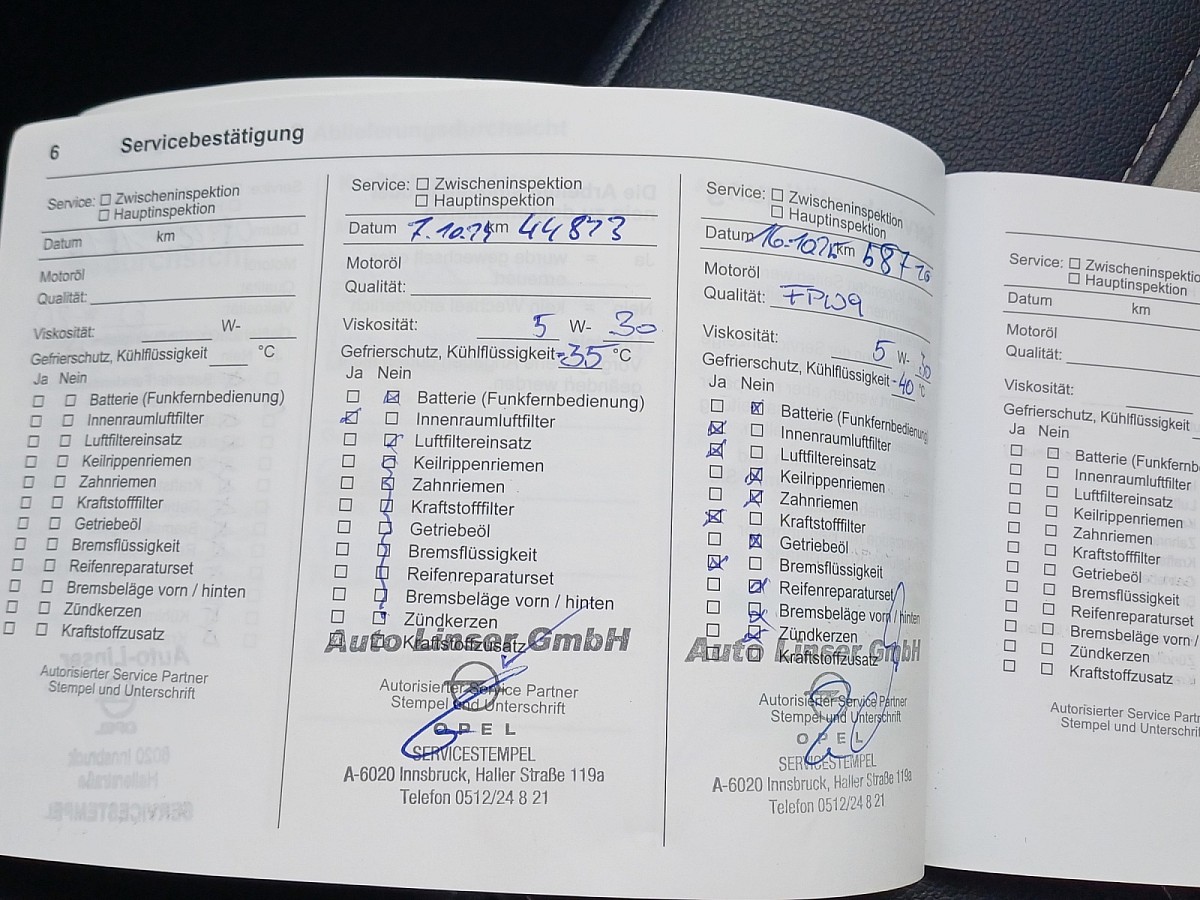 6 Servicebestätigung
Service: Zwischeninspektion
Hauptinspektion
Datum km
Motoröl
Qualität:
Viskosität: W-
Gefrierschutz, Kühlflüssigkeit °C
Ja Nein
Batterie (Funkfernbedienung)
Innenraumluftfilter
Luftfiltereinsatz
Keilrippenriemen
Zahnriemen
Kraftstofffilter
Getriebeöl
Bremsflüssigkeit
Reifenreparaturset
Bremsbeläge vorn / hinten
Zündkerzen
Kraftstoffzusatz
Autorisierter Service Partner
Stempel und Unterschrift
Service: Zwischeninspektion
Hauptinspektion
Datum 7.10. km 44873
Motoröl
Qualität:
Viskosität: 5 W- 30
Gefrierschutz, Kühlflüssigkeit -35 °C
Ja Nein
Batterie (Funkfernbedienung)
Innenraumluftfilter
Luftfiltereinsatz
Keilrippenriemen
Zahnriemen
Kraftstofffilter
Getriebeöl
Bremsflüssigkeit
Reifenreparaturset
Bremsbeläge vorn / hinten
Zündkerzen
Kraftstoffzusatz
Auto Linser GmbH
Autorisierter Service Partner
Stempel und Unterschrift
OPEL
SERVICESTEMPEL
A-6020 Innsbruck, Haller Straße 119a
Telefon 0512/24 8 21
Service: Zwischeninspektion
Hauptinspektion
Datum km
Motoröl
Qualität:
Viskosität: 5 W- 30
Gefrierschutz, Kühlflüssigkeit -40 °C
Ja Nein
Batterie (Funkfernbedienung
Innenraumluftfilter
Luftfiltereinsatz
Keilrippenriemen
Zahnriemen
Kraftstofffilter
Getriebeöl
Bremsflüssigkeit
Reifenreparaturset
Bremsbeläge vorn / hinten
Zündkerzen
Kraftstoffzusatz
Auto Linser GmbH
Autorisierter Service Partner
Stempel und Unterschrift
OPEL
SERVICESTEMPEL
A-6020 Innsbruck, Haller Straße 119a
Telefon 0512/24 8 21
Service: Zwischeninspektio
Hauptinspektion
Datum km
Motoröl
Qualität:
Viskosität:
Gefrierschutz, Kühlflüssigkeit
Ja Nein
Batterie (Funkfernb
Innenraumluftfilter
Luftfiltereinsatz
Keilrippenriemen
Zahnriemen
Kraftstofffilter
Getriebeöl
Bremsflüssigkeit
Reifenreparaturset
Bremsbeläge vorn /
Zündkerzen
Kraftstoffzusatz
Autorisierter Service Partn
Stempel und Unterschri